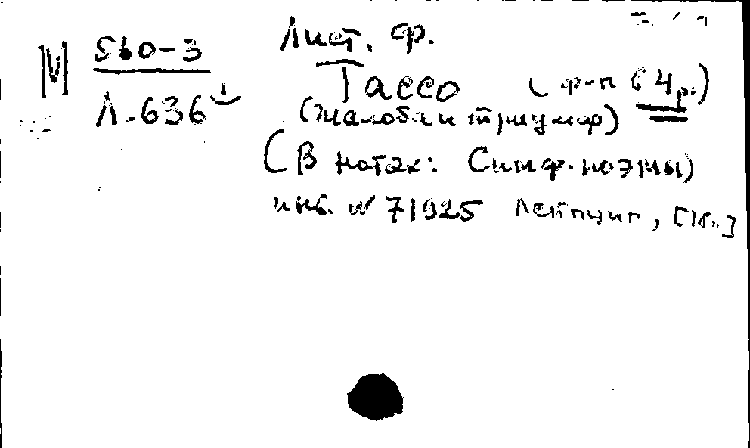 М 560-3
Л-636
Лист. Ф.
Тассо (ф-п в 4 р.)
(жалоба и триумф)
(В нотах: Симф. поэмы)
инв. № 71925 Лейпциг,